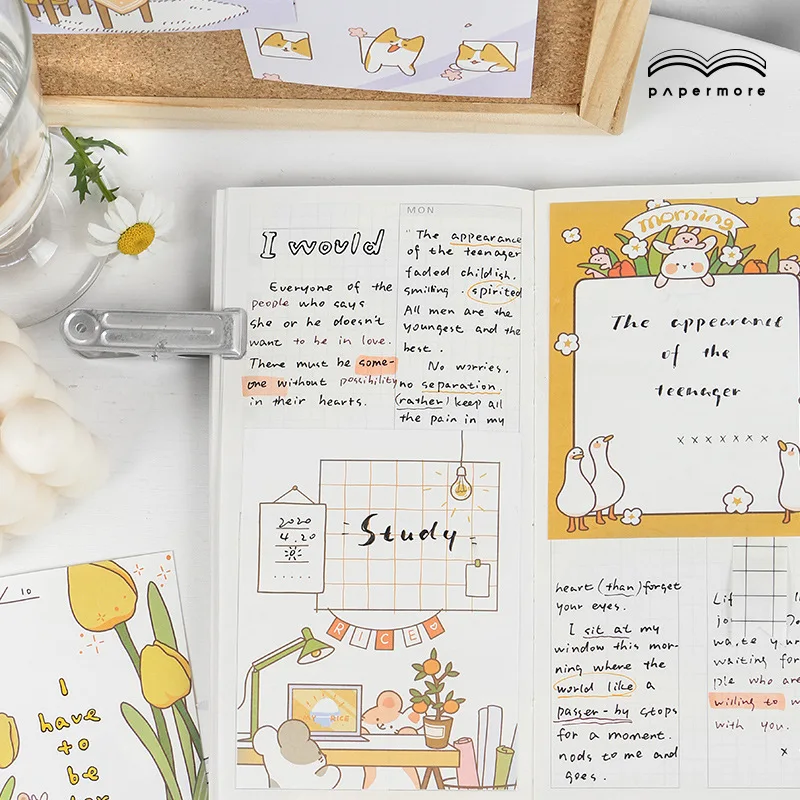 papermore
MON
I would
Everyone of the
people who says
she or he doesn't
want to be in love.
There must be some-
one without possibility
in their hearts.
"The appearance
of the teenager
faded childish.
smiling. spirited
All men are the
youngest and the
best.
No worries.
no separation.
(rather) keep all
the pain in my
2020
4.20
Study
RICE
MY RICE
morning
The appearance
of the
teenager
x x x x x x x
heart (than) forget
your eyes.
I sit at my
window this mor-
ning where the
world like a
passer-by stops
for a moment.
nods to me and
goes.
Lif
jo
wa.te y
waiting for
ple who are
willing to w
with you.
x
/ 10
I
have
to
be